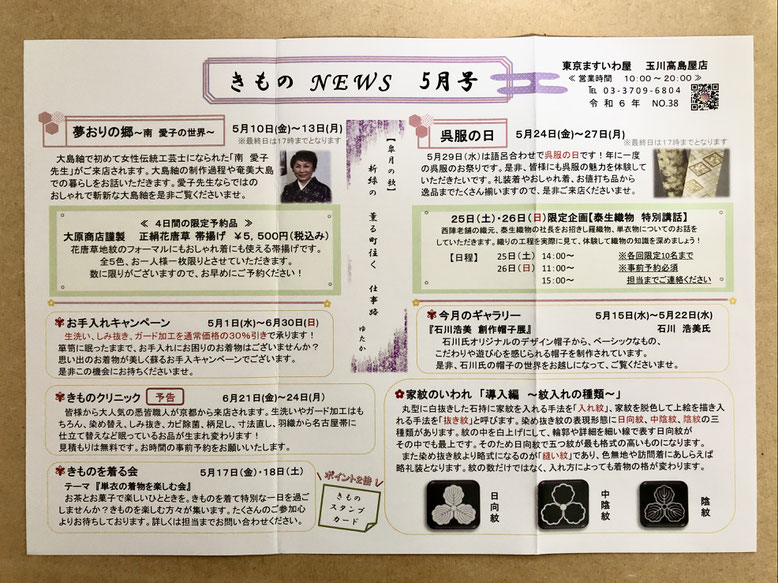 きもの NEWS 5月号
東京ますいわ屋 玉川高島屋店
≪営業時間 10:00～20:00≫
℡ 03-3709-6804
令和6年 NO.38
夢おりの郷～南 愛子の世界～ 5月10日(金)～13日(月)
※最終日は17時までとなります
大島紬で初めて女性伝統工芸士になられた「南 愛子
先生」がご来店されます。大島紬の制作過程や奄美大島
での暮らしをお話いただきます。愛子先生ならではの
おしゃれで斬新な大島紬を是非ご覧くださいませ。
≪ 4日間の限定予約品 ≫
大原商店謹製 正絹花唐草 帯揚げ ￥5,500円(税込み)
花唐草地紋のフォーマルにもおしゃれ着にも使える帯揚げです。
全5色、お一人様一枚限りとさせていただきます。
数に限りがございますので、お早めにご予約ください！
お手入れキャンペーン 5月1日(水)～6月30日(日)
生洗い、しみ抜き、ガード加工を通常価格の30％引きで承ります！
箪笥に眠ったままで、お手入れにお困りのお着物はございませんか？
思い出のお着物が美しく蘇るお手入キャンペーンでございます。
是非この機会にお持ちくださいませ。
きものクリニック 予告 6月21日(金)～24日(月)
皆様から大人気の悉皆職人が京都から来店されます。生洗いやガード加工はも
ちろん、染め替え、しみ抜き、カビ除菌、柄足し、寸法直し、羽織から名古屋帯に
仕立て替えなど眠っているお品が生まれ変わります！
見積もりは無料です。お時間の事前予約をお願いいたします。
きものを着る会 5月17日(金)・18日(土)
テーマ『単衣の着物を楽しむ会』
お茶とお菓子で楽しいひとときを。きものを着て特別な一日を過ご
しませんか？きものを楽しむ方々が集います。たくさんのご参加心
よりお待ちしております。詳しくは担当までお問い合わせください。
ポイント2倍
きもの
スタンプ
カード
【皐月の歌】
新緑の 薫る町往く 仕事路
ゆたか
呉服の日 5月24日(金)～27日(月)
※最終日は17時までとなります
5月29日(水)は語呂合わせで呉服の日です！年に一度
の呉服のお祭りです。是非、皆様にも呉服の魅力を体験して
いただきたいです。礼装着やおしゃれ着、お値打ち品から
逸品までたくさん揃いますので、是非ご来店くださいませ。
25日(土)・26日(日)限定企画【泰生織物 特別講話】
西陣老舗の織元、泰生織物の社長をお招きし羅織物、単衣物についてのお話を
していただきます。織りの工程を実際に見て、体験して織物の知識を深めましょう！
【日程】 25日(土) 14:00～ ※各回限定10名まで
26日(日) 11:00～ ※事前予約必須
15:00～ 担当までご連絡ください
今月のギャラリー 5月15日(水)～5月22日(水)
『石川浩美 創作帽子展』 石川 浩美氏
石川氏オリジナルのデザイン帽子から、ベーシックなもの、
こだわりや遊び心を感じられる帽子を制作されています。
是非、石川氏の帽子の世界をお越しになって、ご覧くださいませ。
家紋のいわれ 「導入編 ～紋入れの種類～」
丸型に白抜きした石持に家紋を入れる手法を「入れ紋」、家紋を脱色して上絵を描き入
れる手法を「抜き紋」と呼びます。染め抜き紋の表現形態に日向紋、中陰紋、陰紋の三
種類があります。紋の中を白上げにして、輪郭や詳細を細い線で表す日向紋が
その中でも最上です。そのため日向紋で五つ紋が最も格式の高いものになります。
また染め抜き紋より略式になるのが「縫い紋」であり、色無地や訪問着にあしらえば
略礼装となります。紋の数だけではなく、入れ方によっても着物の格が変わります。
日向紋
中陰紋
陰紋